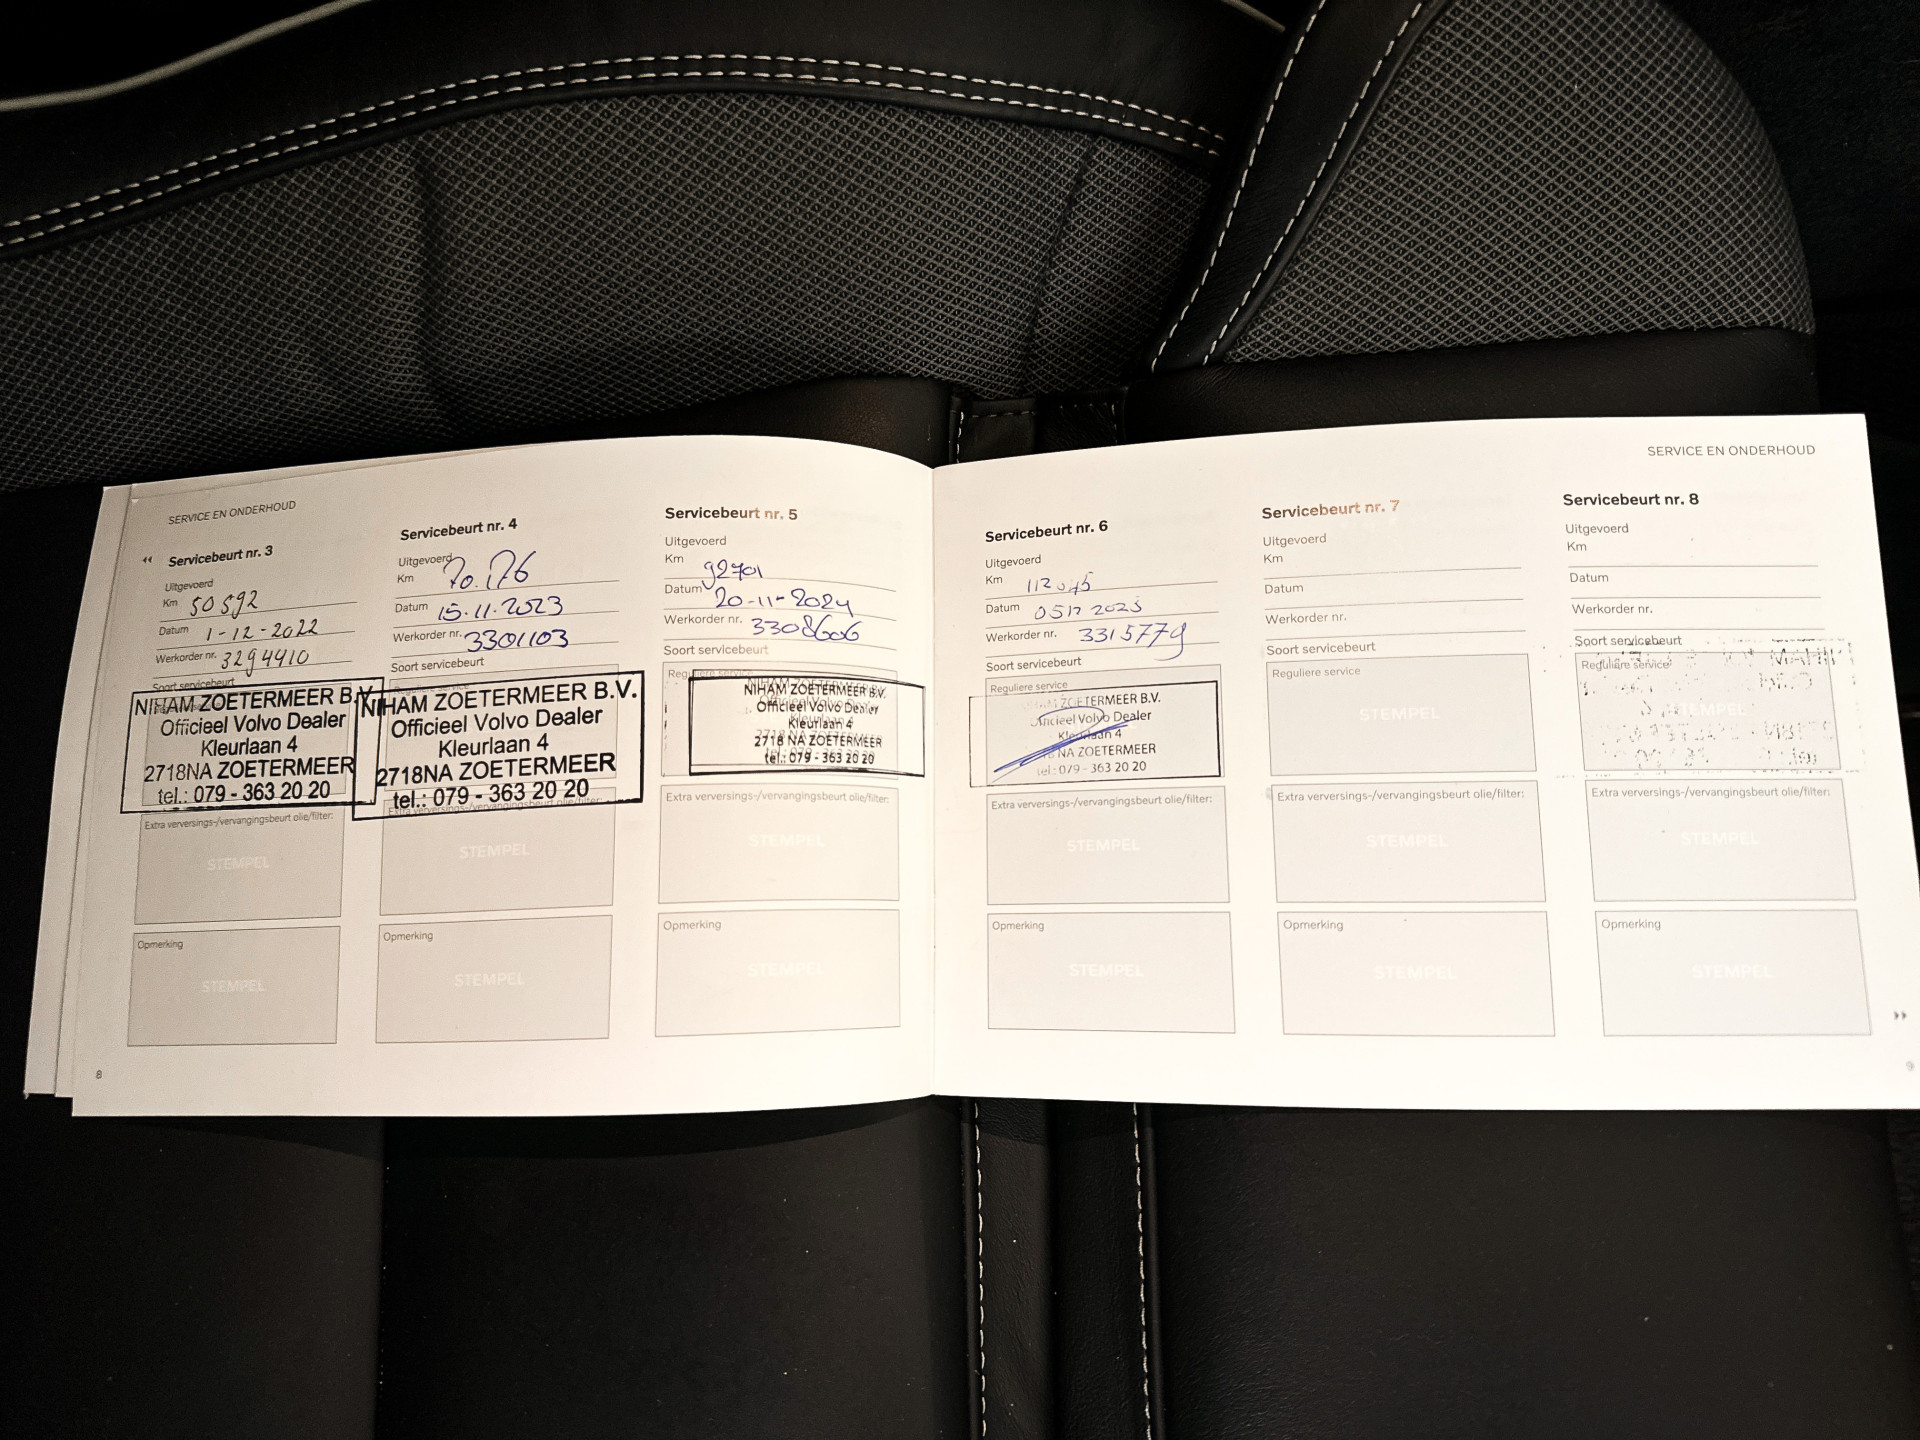 SERVICE EN ONDERHOUD
Servicebeurt nr. 3
Uitgevoerd
Km 50592
Datum 1-12-2022
Werkorder nr. 3294410
Soort servicebeurt
NIHAM ZOETERMEER B.V.
Officieel Volvo Dealer
Kleurlaan 4
2718NA ZOETERMEER
tel.: 079 - 363 20 20
Extra verversings-/vervangingsbeurt olie/filter:
STEMPEL
Opmerking
STEMPEL
8
Servicebeurt nr. 4
Uitgevoerd
Km 70.176
Datum 15.11.2023
Werkorder nr. 3301103
Soort servicebeurt
Reguliere service
NIHAM ZOETERMEER B.V.
Officieel Volvo Dealer
Kleurlaan 4
2718NA ZOETERMEER
tel.: 079 - 363 20 20
Extra verversings-/vervangingsbeurt olie/filter:
STEMPEL
Opmerking
STEMPEL
Servicebeurt nr. 5
Uitgevoerd
Km 92701
Datum 20-11-2024
Werkorder nr. 3308606
Soort servicebeurt
Reguliere service
NIHAM ZOETERMEER B.V.
Officieel Volvo Dealer
Kleurlaan 4
2718 NA ZOETERMEER
tel.: 079 - 363 20 20
Extra verversings-/vervangingsbeurt olie/filter:
STEMPEL
Opmerking
STEMPEL
SERVICE EN ONDERHOUD
Servicebeurt nr. 6
Uitgevoerd
Km
Datum 0512 2025
Werkorder nr. 3315779
Soort servicebeurt
Reguliere service
ZOETERMEER B.V.
Officieel Volvo Dealer
Kleurlaan 4
NA ZOETERMEER
tel.: 079 - 363 20 20
Extra verversings-/vervangingsbeurt olie/filter:
STEMPEL
Opmerking
STEMPEL
Servicebeurt nr. 7
Uitgevoerd
Km
Datum
Werkorder nr.
Soort servicebeurt
Reguliere service
STEMPEL
Extra verversings-/vervangingsbeurt olie/filter:
STEMPEL
Opmerking
STEMPEL
Servicebeurt nr. 8
Uitgevoerd
Km
Datum
Werkorder nr.
Soort servicebeurt
Reguliere service
STEMPEL
Extra verversings-/vervangingsbeurt olie/filter:
STEMPEL
Opmerking
STEMPEL
9